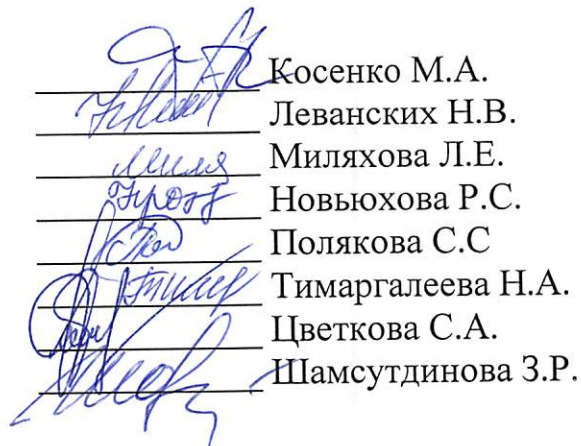 Косенко М.А.
Леванских Н.В.
Миляхова Л.Е.
Новьюхова Р.С.
Полякова С.С
Тимаргалеева Н.А.
Цветкова С.А.
Шамсутдинова З.Р.